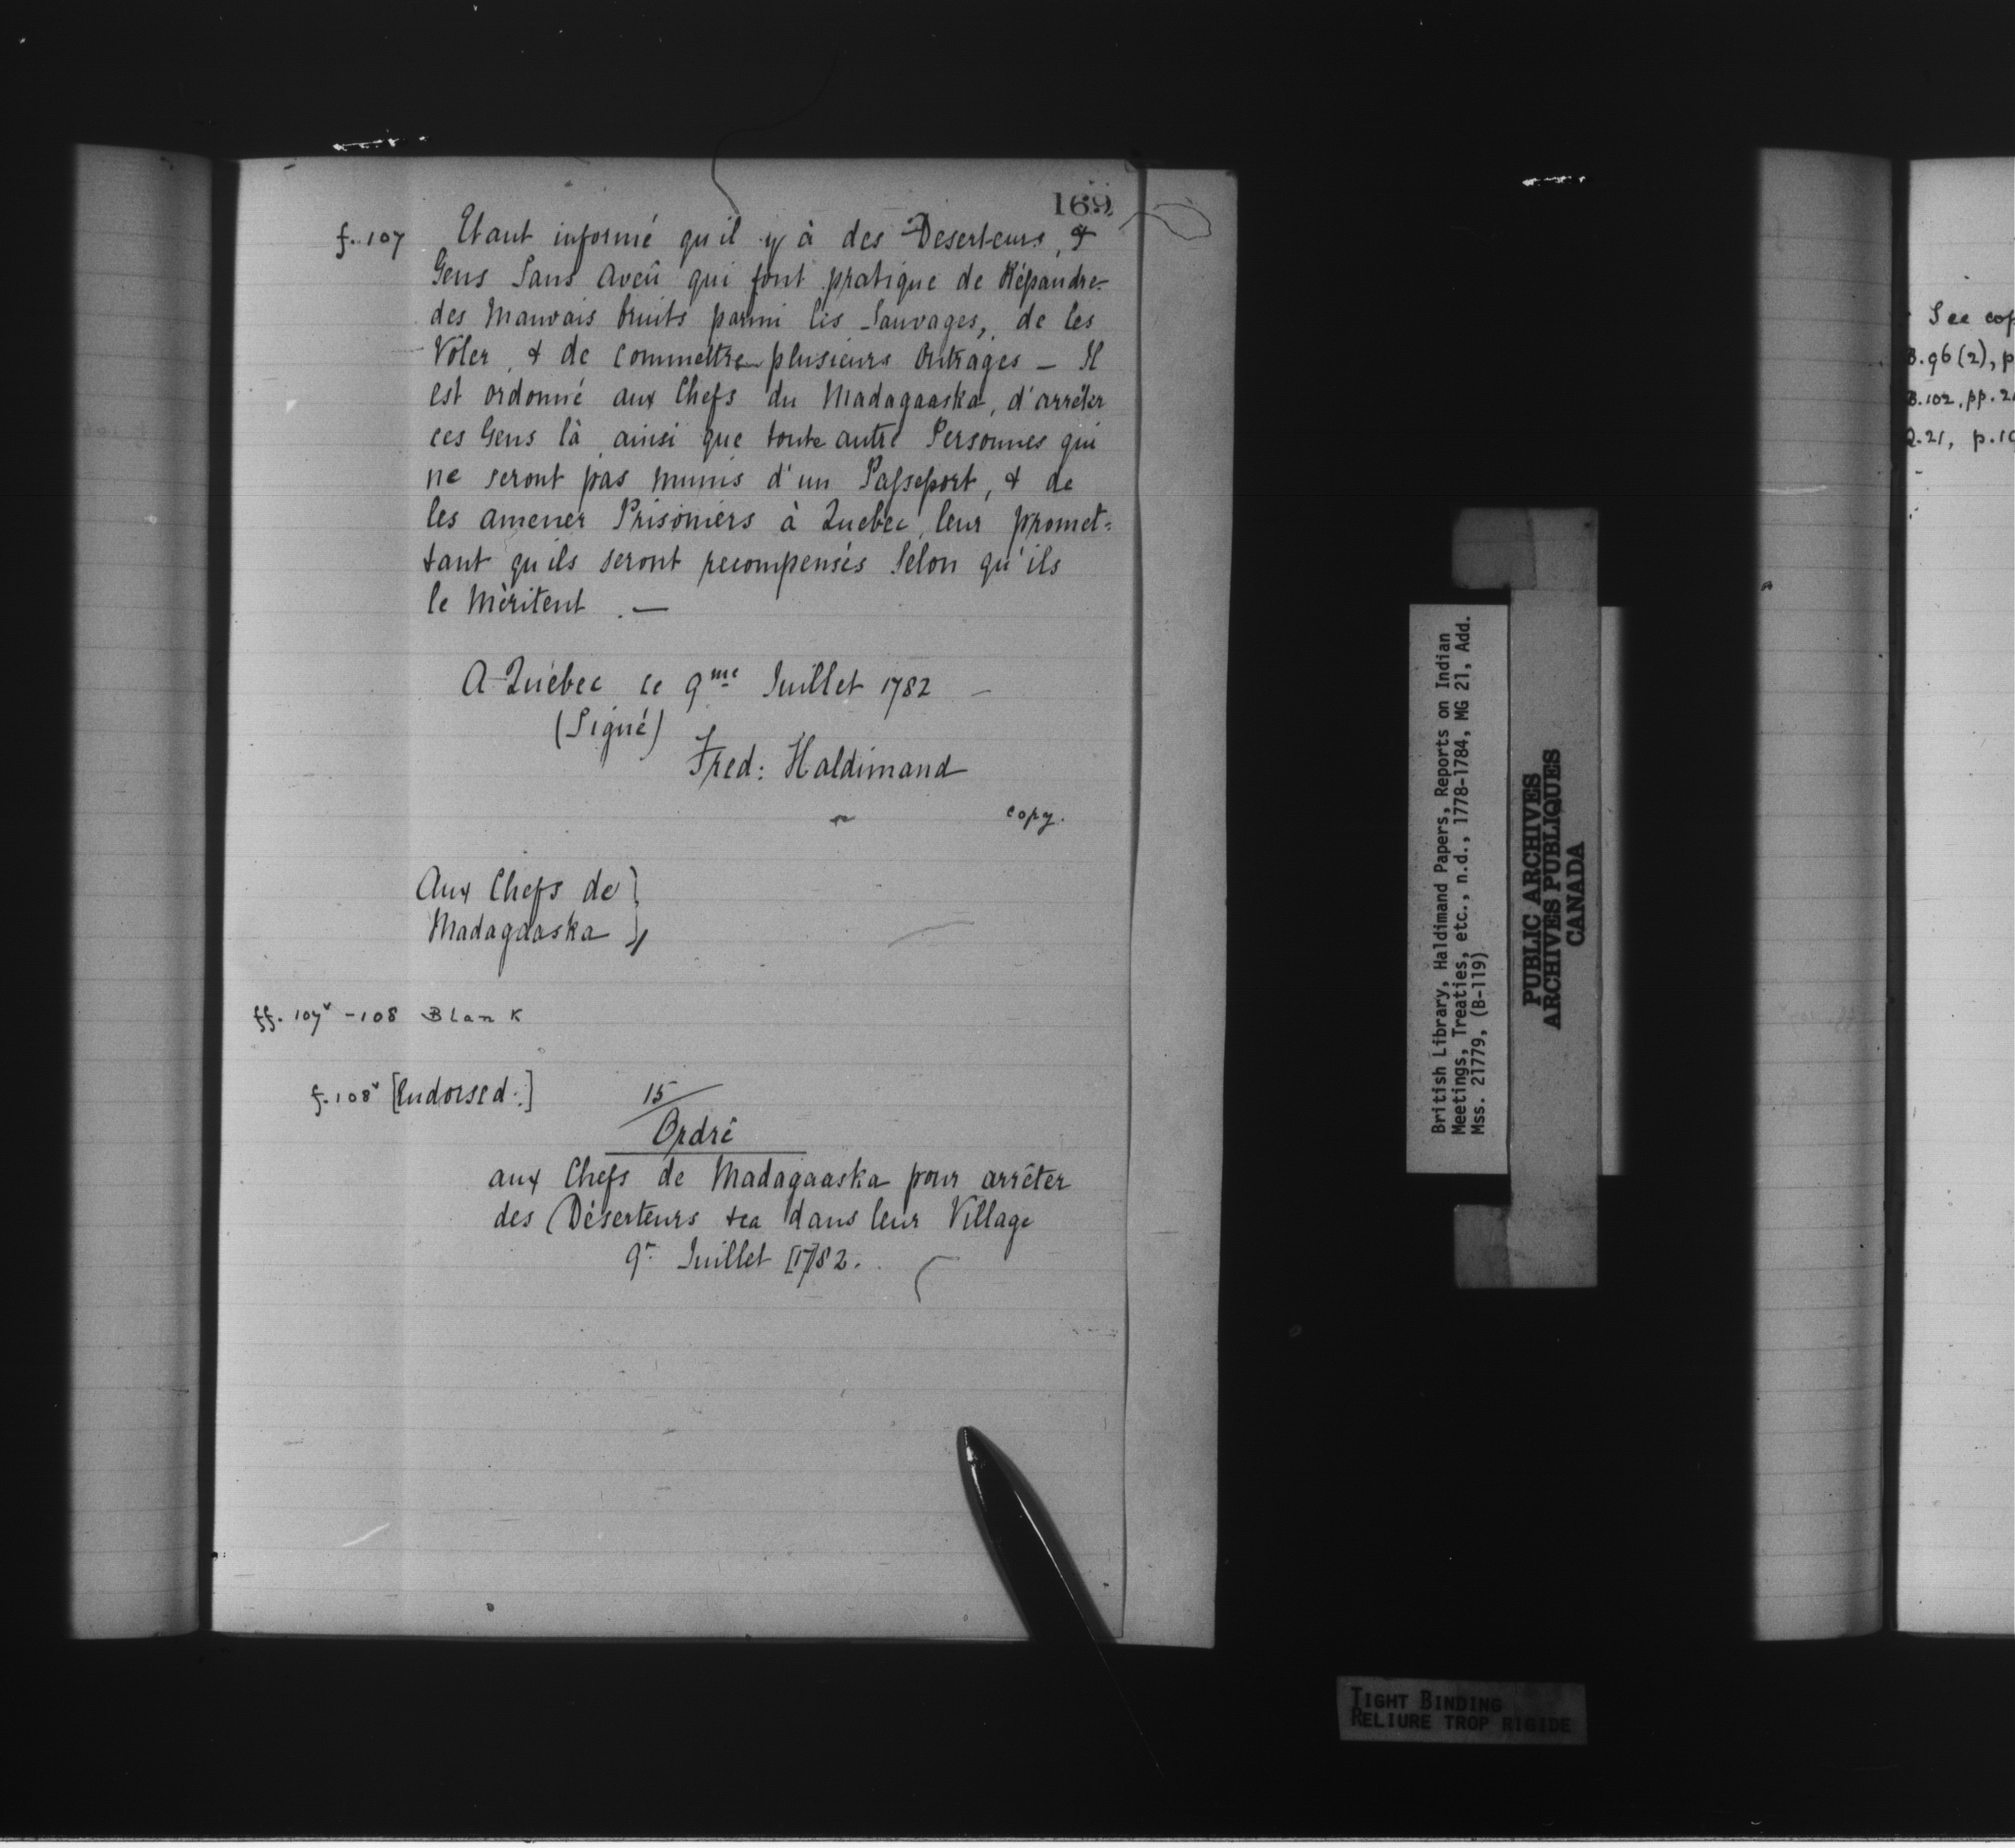 169
f. 107 Etant informé qu'il y à des Deserteurs, &
Gens Sans aveû qui font pratique de Répandre
des Mauvais bruits parmi les Sauvages, de les
Voler, & de Commettre plusieurs Outrages — Il
est ordonné aux Chefs du Madagaaska, d'arrêter
ces Gens là, ainsi que toute autre Personnes qui
ne seront pas munis d'un Passeport, & de
les amener Prisoniers à Quebec, leur promet=
tant qu'ils seront recompensés Selon qu'ils
le Méritent. —
A Québec ce 9me Juillet 1782 —
(Signé)
Fred: Haldimand
copy.
Aux Chefs de }
Madagaaska }
ff. 107v - 108 Blank
f. 108v [Endorsed:] 15
Ordre
aux Chefs de Madagaaska pour arrêter
des Déserteurs &ca dans leur Village
9r Juillet [17]82.
British Library, Haldimand Papers, Reports on Indian
Meetings, Treaties, etc., n.d., 1778-1784, MG 21, Add.
Mss. 21779, (B-119)
PUBLIC ARCHIVES
ARCHIVES PUBLIQUES
CANADA
TIGHT BINDING
RELIURE TROP RIGIDE
See
B.96 (2), p
B.102, pp. 2
Q.21, p.10